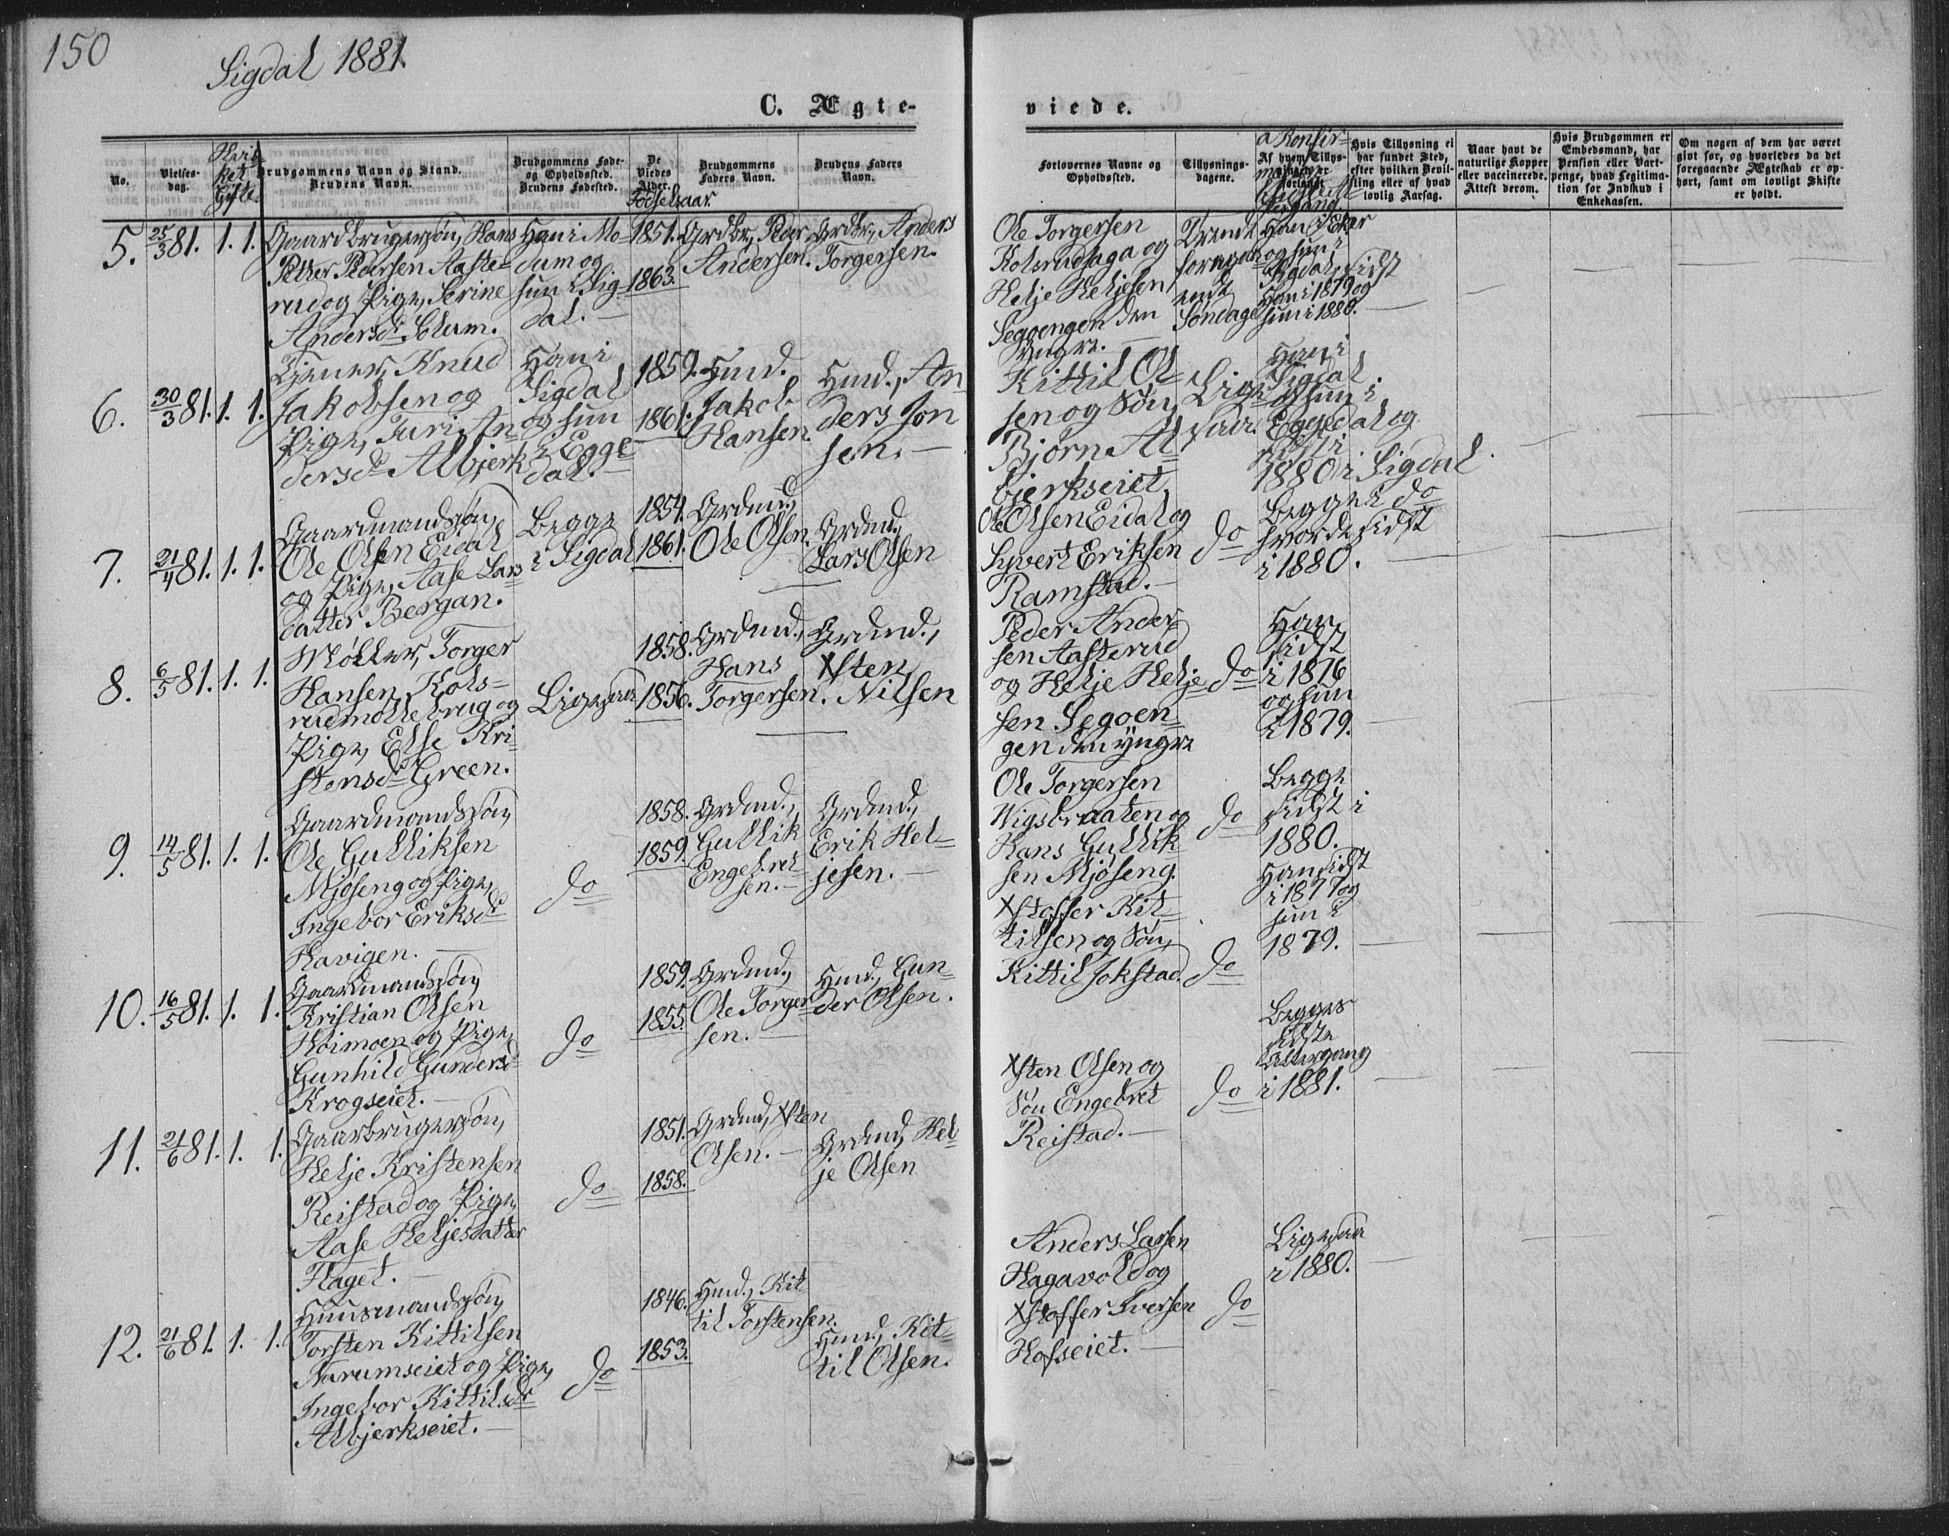 150
Sigdal 1881.
C. Ægte-
viede.
No.
Vielses-
dag.
Brudgommens Navn og Stand.
Brudens Navn.
Brudgommens Føde-
og Opholdssted.
Brudens Fødested.
De
Viedes
Alder.
Fødselsaar
Brudgommens
Faders Navn.
Brudens Faders
Navn.
Forlovernes Navne og
Opholdssted.
Tillysnings-
dagene.
Hvis Tillysning ei
har fundet Sted,
efter hvilken Bevil-
ling eller af hvad
lovlig Aarsag.
Naar havt de
naturlige Kopper
eller vaccinerede.
Attest derom.
Hvis Brudgommen er
Embedsmand, har
Pension eller Vart-
penge, hvad Legitima-
tion for Indskud i
Enkekassen.
Om nogen af dem har været
givt før, og hvorledes da det
foregaaende Ægteskab er op-
hørt, samt om lovligt Skifte
er holdt.
5. 25/3 81. 1. 1.
Gaardbrugersøn, Hans
Petter Pedersen Aaste-
rud og Pige, Serine
Andersdr Solum.
Han i Mo-
dum og
hun i Sig-
dal.
1851.
1863.
Grdbr, Peder
Andersen.
Grdbr, Anders
Torgersen.
Ole Torgersen
Kolsrudsaga og
Helje Heljesen
Segoengen den
yngre.
Trende
foregaa-
ende
Søndage
Han i Eker
og hun i
Sigdal, sidst
Han i 1879 og
hun i 1880.
6. 30/3 81. 1. 1.
Tjener, Knud
Jakobsen og
Pige, Turi An-
dersdr Albjerk
Han i
Sigdal
og hun
i Egge-
dal.
1859.
1861.
Hmd.
Jakob
Hansen.
Hmd., An
ders Jon
sen.
Kittil Ol-
sen og Søn,
Bjørn Al-
bjerkseiet
Lige-
saa.
Han i
Sigdal
og hun i
Eggedal og
sidst i
1880 i Sigdal
7. 21/4 81. 1. 1.
Gaardmandssøn,
Ole Olsen Eidal
og Pige, Aase Lars
datter Bergan.
Begge
i Sigdal
1854.
1861.
Grdmd.,
Ole Olsen.
Grdmd.,
Lars Olsen
Ole Olsen Eidal og
Syvert Eriksen
Ramstad.
do
Begge i do
hvorde sidst
i 1880.
8. 6/5 81. 1. 1.
Møller, Torger
Hansen Kols-
rudmøllebrug og
Pige, Else Kri-
stensdr Green.
Ligesaa
1858.
1856.
Grdmd.,
Hans
Torgersen.
Grdmd.,
Xsten
Nilsen
Peder Ander-
sen Aasterud
og Helje Helje-
sen Segoen-
gen den yngre
do
Han
sidst
i 1876
og hun
i 1879.
9. 14/5 81. 1. 1.
Gaardmandssøn,
Ole Gulliksen
Mjøseng og Pige,
Ingebor Eriksdr
Havigen.
do
1858.
1859.
Grdmd.,
Gullik
Engebret
sen.
Grdmd.,
Erik Hel-
jesen.
Ole Torgersen
Vigsbraaten og
Hans Gullik-
sen Mjøseng.
do
Begge
sidst i
1880.
10. 16/5 81. 1. 1.
Gaardmandssøn,
Kristian Olsen
Hoimoen og Pige,
Gunhild Gundersd
Krogseiet.
do
1859.
1855.
Grdmd.,
Ole Torger
sen.
Hmd., Gun-
der Olsen.
Xstoffer Kit-
tilsen og Søn,
Kittil Jokstad.
do
Han sidst
i 1877 og
hun i
1879.
11. 21/6 81. 1. 1.
Gaarbrugersøn,
Helje Kristensen
Reistad og Pige,
Aase Heljesdatter
Flaget.
do
1851.
1858.
Grdmd, Xsten
Olsen.
Grdmd, Hel-
je Olsen
Xsten Olsen og
Søn Engebret
Reistad.
do
Begges
sidste
Altergang
i 1881.
12. 21/6 81. 1. 1.
Huusmandssøn,
Torsten Kittilsen
Narumseiet og Pige,
Ingebor Kittilsdr
Albjerkseiet.
do
1846.
1853.
Hmd., Kit
til Torstensen.
Hmd, Kit-
til Olsen.
Anders Larsen
Hagavold og
Xstoffer Iversen
Hofseiet.
do
Ligesaa
i 1880.